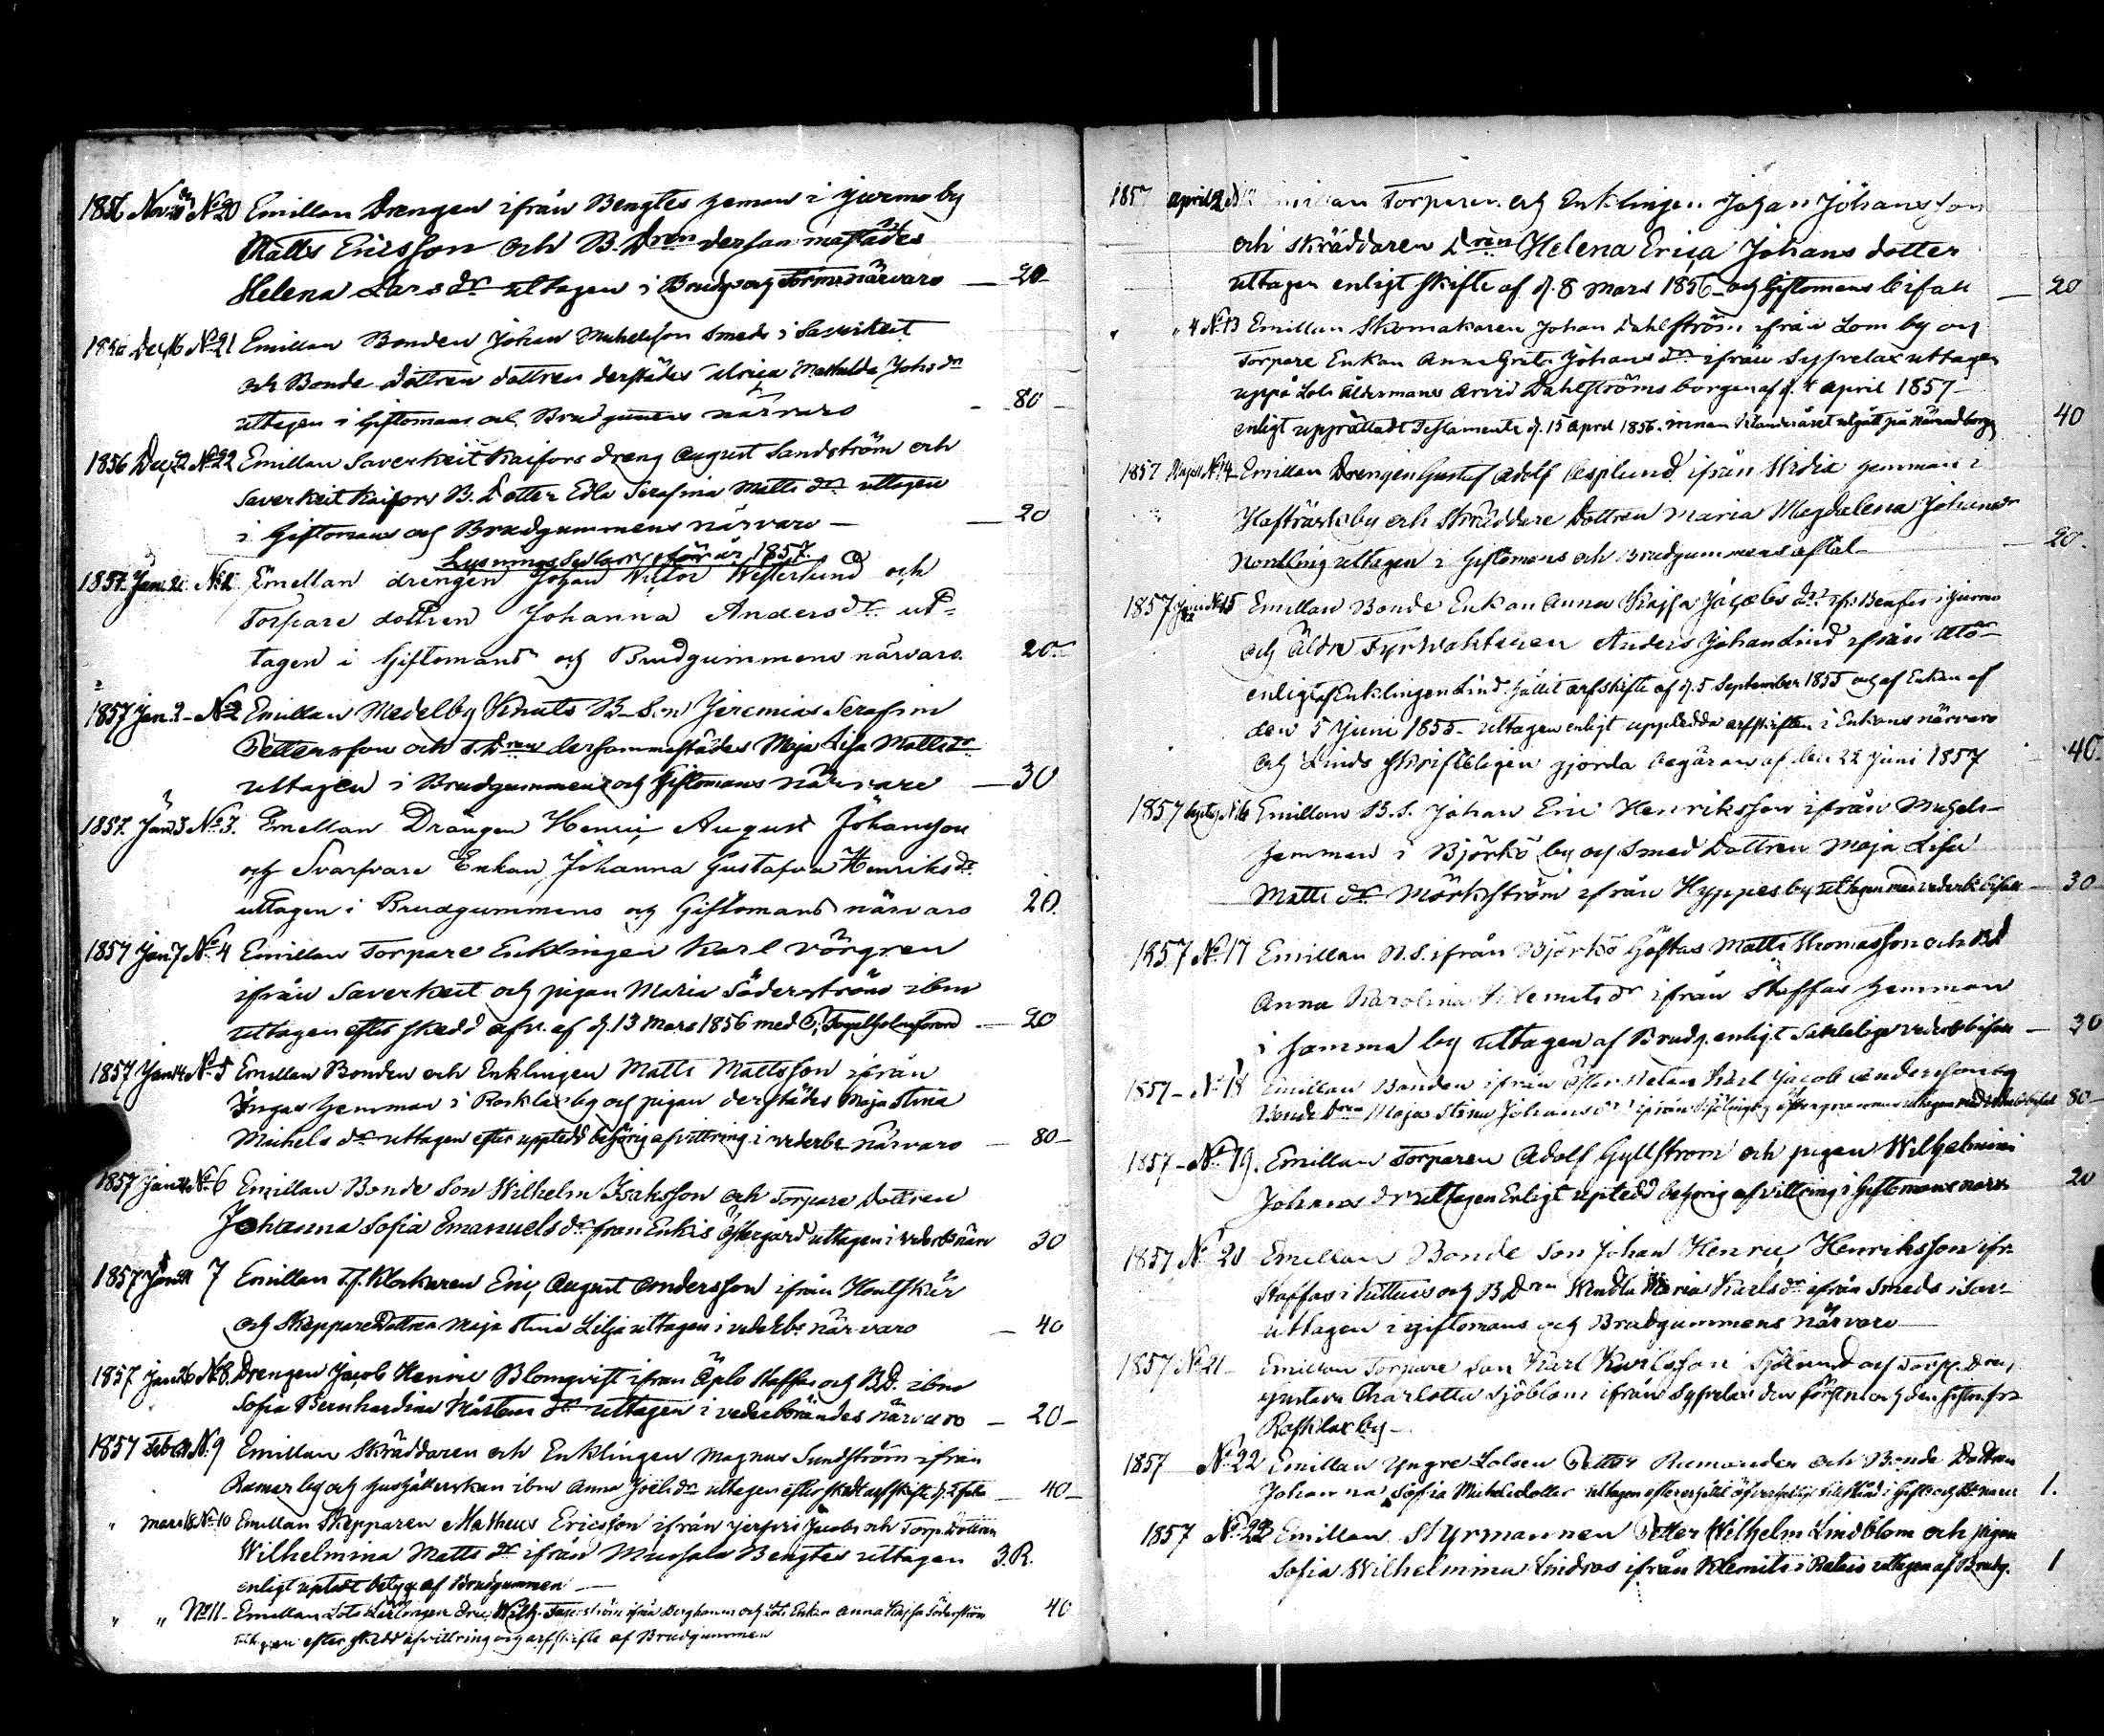 1856 Nov 20 No 20 Emillan Drengen ifrån Bengtes heman i Jurmo by
Matts Ericsson och B. Dren dersammastädes
Helena Larsdr uttagen i Brudg. och Förm närvaro — 20
Dec 16 No 21 Emillan Bonden Johan Michelsson Smeds i Saverkeit
och Bonde dottren dottren derstädes Ulrica Mathilda Johsdr
uttagen i Giftomans och Brudgumens närvaro - 80
1856 Dec 22 No 22 Emillan Saverkeit Kaifors dreng August Sandström och
Saverkeit Kaifors B. Dotter Edla Serafina Matts dr uttagen
i Giftomans och Brudgummens närvaro — 20
Lysnings Sedlar för år 1857
1857 Jan 2 No 1 Emellan drengen Johan Victor Westerlund och
Torpare dottren Johanna Andersdr ut-
tagen i Giftomans och Brudgummens närvaro. 20
1857 Jan. 2 - No 2 Emillan Medelby Knuts B-Son Jeremias Serafim
Pettersson och T. Dren dersammastädes Maja Lisa Mattsdr
uttagen i Brudgummens och Giftomans närvaro — 30
1857 Jan 3 No 3. Emellan Drängen Henric August Johansson
och Svarfvare Enkan Johanna Gustafva Henriksdr
uttagen i Brudgummens och Giftomans närvaro 20.
1857 Jan 7 No 4 Emillan Torpare Enklingen Karl Vörgren
ifrån Saverkeit och pigan Maria Söderström ibm
uttagen efter skedd afv. af d. 13 Mars 1856 med — 20
1857 Jan 14 No 5 Emillan Bonden och Enklingen Matts Mattsson ifrån
Ingas hemman i Rosklax by och pigan derstädes Maja Stina
Michelsdr uttagen efter upptedd behörig afvittring i vederbr närvaro — 80 —
1857 Jan No 6 Emillan Bonde Son Wilhelm Isaksson och Torpare Dottren
Johanna Sofia Emanuelsdr fran Enkis Östergård uttagen i vederbs närv 30
1857 Jan 7 Emillan T.f. Klockaren Eric August Andersson ifrån Houtskär
och Skeppare Dottren Maja Stina Lilja uttagen i vederbs närvaro — 40
1857 Jan 26 No 8. Drengen Jacob Henric Blomqvist ifrån Äplo Staffas och B.D. ibm
Sofia Bernhardina Mårtens dr uttagen i vederbörandes närvaro — 20 —
1857 Feb No 9 Emillan Skräddaren och Enklingen Magnus Sundström ifrån
Ramar by och hushållerskan ibm Anna Joelsdr uttagen efter skedt arfskifte d. 2 febr — 40 —
" Mars 18 No 10 Emillan Skepparen Matheus Ericsson ifrån Jacobs och Torp. Dottren
Wilhelmina Mattsdr ifrån Mussala Bengtes uttagen 3. R.
enligt uptedt betyg af Brudgummen —
" " No 11. Emillan Lots Lärlingen Wilh. ifrån Berghamn och Lots Enkan Anna Kajsa Söderström 40
uttagen efter skedd afvittring och arfskifte af Brudgummen
1857 April 2 No 12 Emillan Torparen och Enklingen Johan Johansson
och skräddaren Dren Helena Erica Johans dotter
uttagen enligt skifte af d. 8 Mars 1856 och Giftomans bifall — 20
" " 4 No 13 Emillan Skomakaren Johan Dahlström ifrån Lom by och
Torpare Enkan Anna Greta Johans dr ifrån Syfvelax uttagen
uppå Lots Åldermans Arvid Dahlströms borgen af d. 4 April 1857 —
enligt upprättadt Testamente d. 15 April 1856. innan Klanderåret utgått på nämnd borgen 40
1857 No 14 Emillan Drengen Gustaf Adolf Asplund ifrån hemman i
by och Skräddare Dottren Maria Magdalena Johansdr
Nordling uttagen i Giftomans och Brudgummens aftal — 20.
1857 Juni No 15 Emillan Bonde Enkan Anna Kajsa Jacobs dr ifr. Benftes i Jurmo
och Äldre Fyrvaktaren Anders Johan Lind ifrån Utö
enligt af Enklingen Lind hållit arfskifte af d. 5 September 1855 och af Enkan af
den 5 Juni 1855 — uttagen enligt uppledda arfskiften i Enkans närvaro
och Linds skrifteligen gjorda begäran af den 22 Juni 1857 — 40.
1857 No 16 Emillan B. S. Johan Eric Henriksson ifrån Mickels
hemman i Björkö by och Smed Dottren Maja Lisa
Matts dr Mörkström ifrån Hyppes by uttagen med vederb. bifall — 30
1857 No 17 Emillan N. S. ifrån Björkö Göstas Matts Thomasson och BD
Anna Karolina Klemetsdr ifrån Staffas hemman
i samma by uttagen af Brudg. enligt vederbs bifall — 30
1857 — No 18 Emillan Bonden ifrån Öster Karl Jacob Andersson och
Bonde Dren Maja Stina Johansdr ifrån uttagen med bifall 80
1857 — No 19. Emillan Torparen Adolf Gyllström och pigan Wilhelmina
Johansdr uttagen Enligt uptedd behörig afvittring i Giftomans närv. 20
1857 No 20 Emillan Bonde Son Johan Henric Henriksson ifr.
Staffas i Kittuis och B Dren Wendla Maria Karlsdr ifrån Smeds i Sav-
uttagen i giftomans och Brudgummens närvaro —
1857 No 21 — Emillan Torpare Son Karl Karlsson Sjölund och Torp. Dren
Gustava Charlotta Sjöblom ifrån Syfvelax den förstnt och den sistn. fr.
Rosklax by —
1857 No 22 Emillan Yngre Lotsen Petter Rumander och Bonde Dottren
Johanna Sofia Michelsdotter uttagen efter tillstånd i Giftoms och 1.
1857 No 23 Emillan Styrmannen Petter Wilhelm Lindblom och pigan
Sofia Wilhelmina Lindros ifrån Klemets i Retais uttagen af Brudg. 1